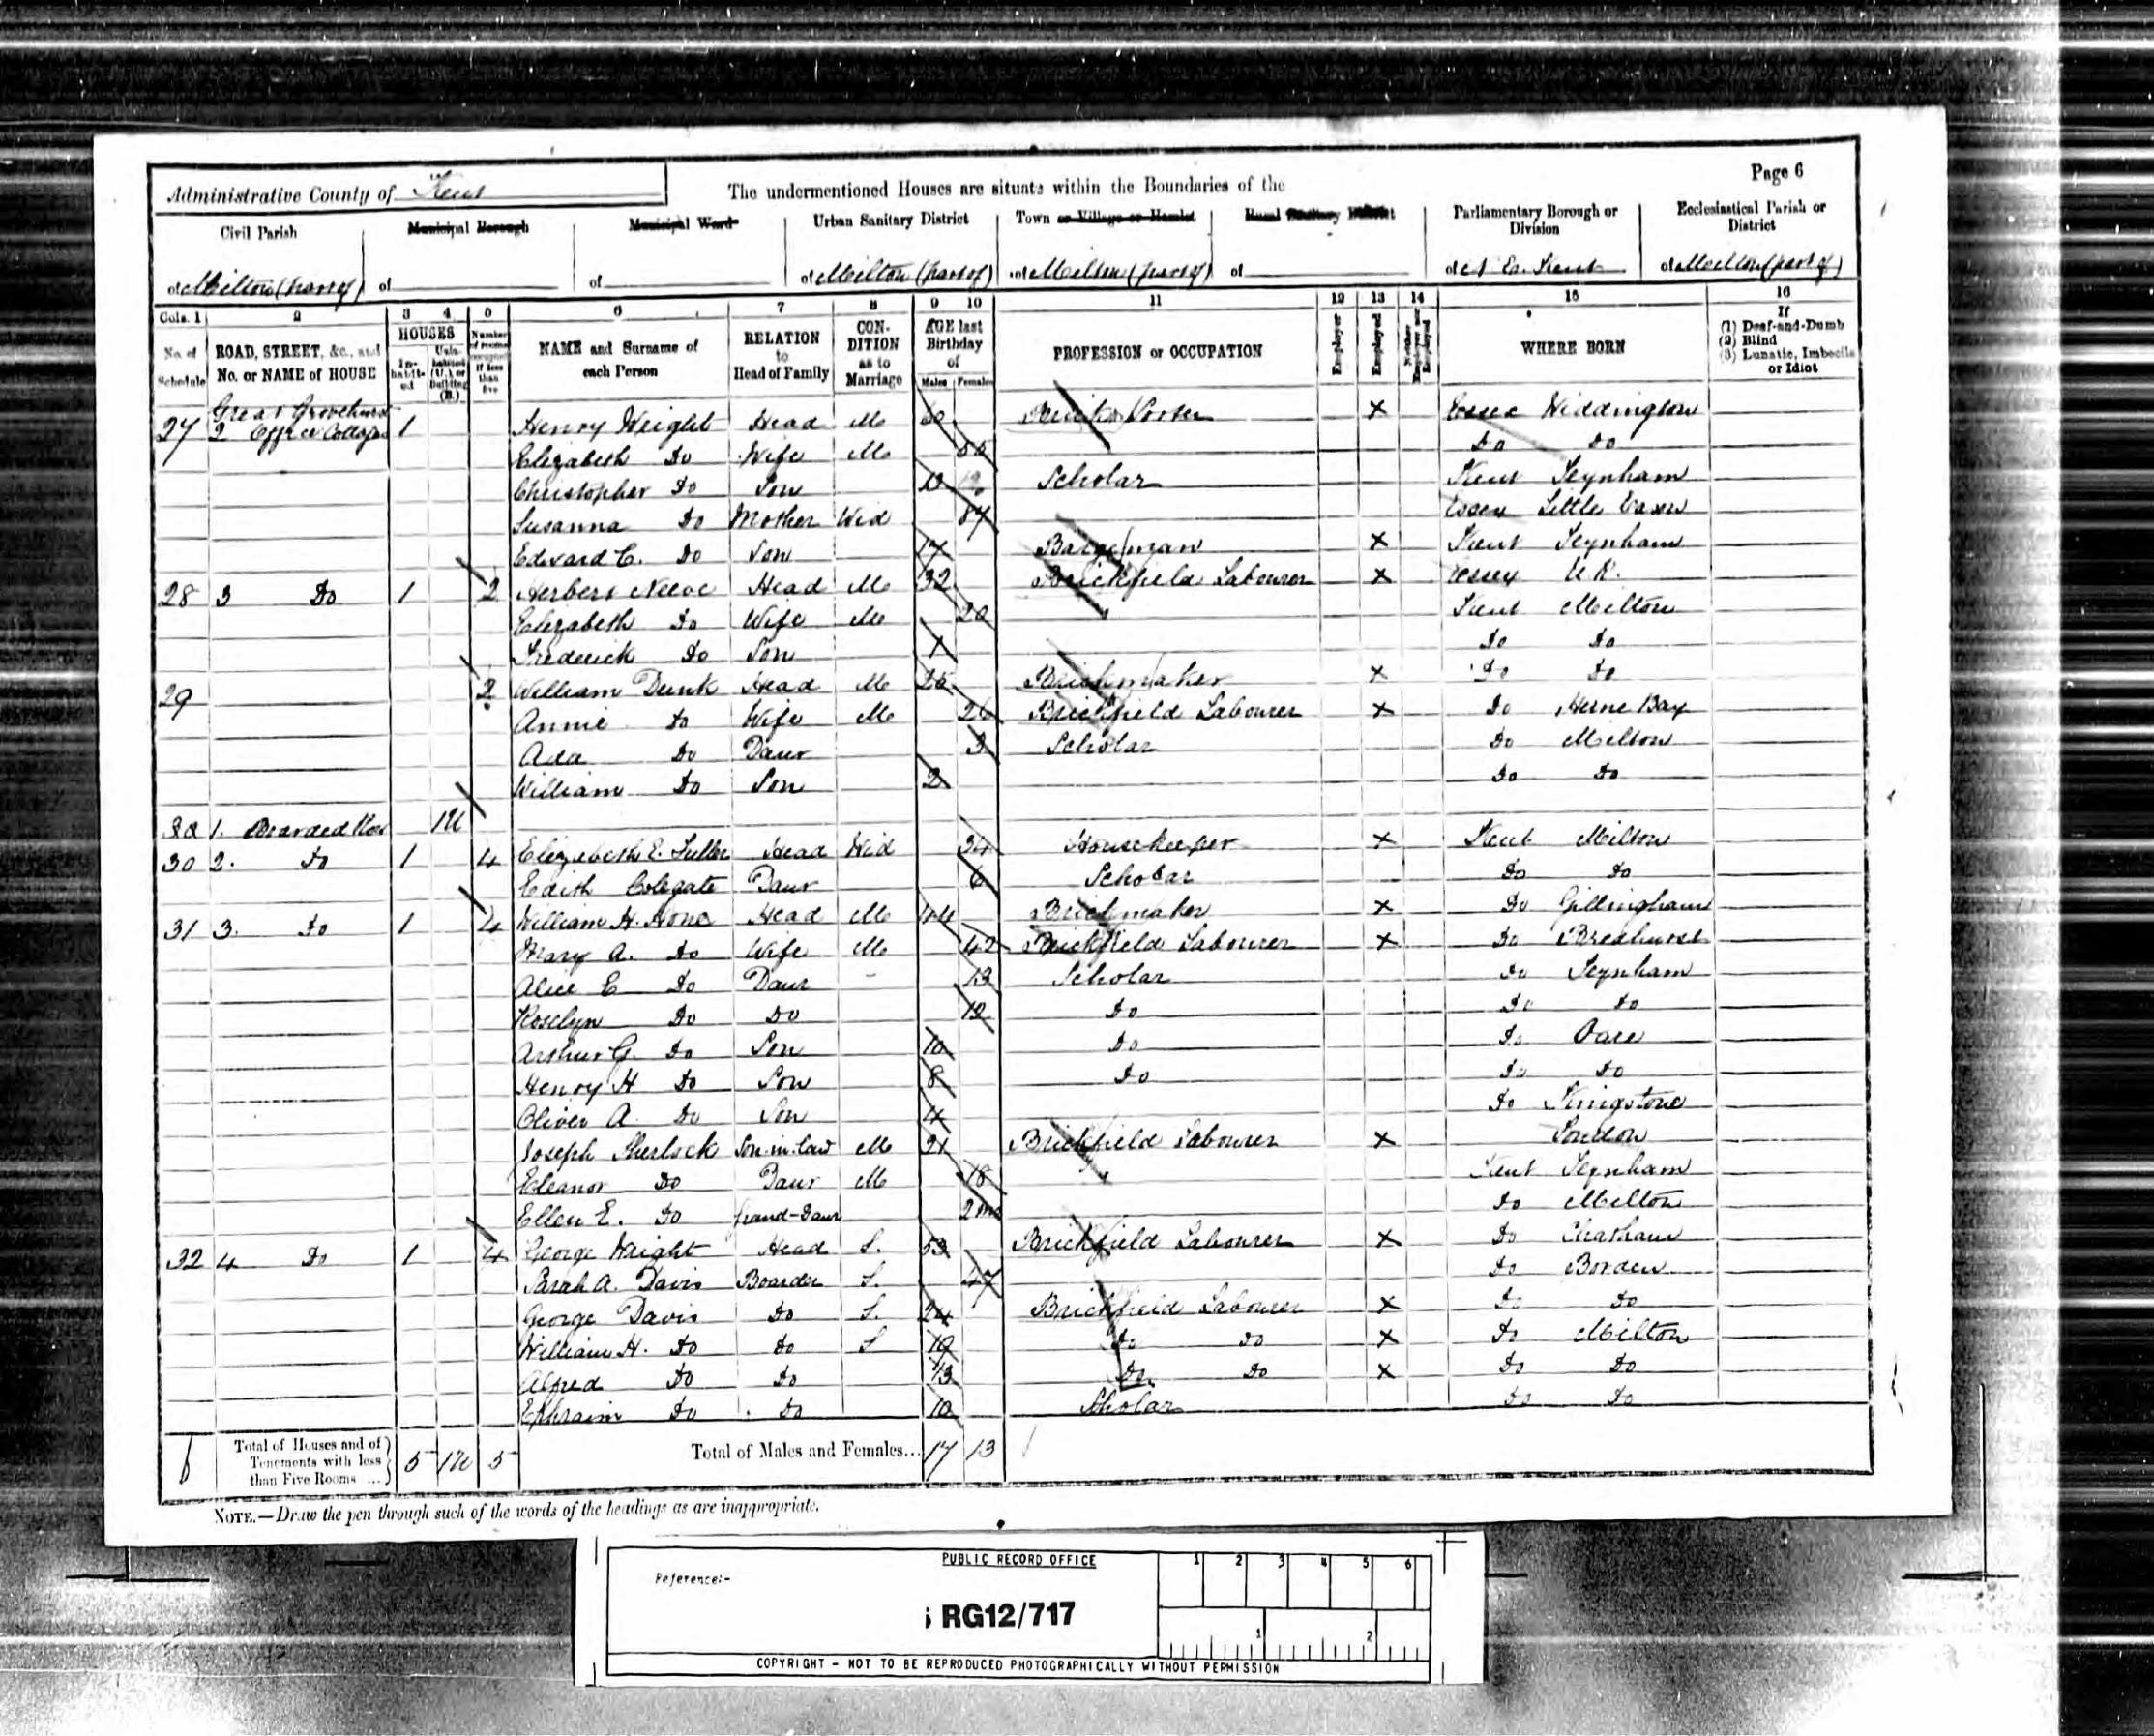 Page 6
Administrative County of Kent
The undermentioned Houses are situate within the Boundaries of the
Civil Parish
Municipal Borough
Municipal Ward
Urban Sanitary District
Town or Village or Hamlet
Rural Sanitary District
Parliamentary Borough or Division
Ecclesiastical Parish or District
of Milton (part of) of of of Milton (part of) of Milton (part of) of of N. Ea. Kent of Milton (part of)
Cols. 1 2 3 4 5 6 7 8 9 10 11 12 13 14 15 16
No. of Schedule
ROAD, STREET, &c., and No. or NAME of HOUSE
HOUSES
In-habit-ed
Unin-habited (U.), or Building (B.)
Number of rooms occupied if less than five
NAME and Surname of each Person
RELATION to Head of Family
CON-DITION as to Marriage
AGE last Birthday of
Males Females
PROFESSION or OCCUPATION
Employer
Employed
Neither Employer nor Employed
WHERE BORN
If
(1) Deaf-and-Dumb
(2) Blind
(3) Lunatic, Imbecile or Idiot
Great Grovehurst
27 2 Cottages 1 Henry Wright Head M 60 Brick Sorter X Essex Widdington
Elizabeth Do Wife M Do Do
Christopher Do Son Scholar Kent Teynham
Susanna Do Mother Wid 87 Essex Little Easton
Edward C. Do Son 17 Bargeman X Kent Teynham
28 3 Do 1 2 Herbert Neeve Head M 32 Brickfield Labourer X Essex U K.
Elizabeth Do Wife M 20 Kent Milton
Frederick Do Son 1 Do Do
29 2 William Dunk Head M 25 Brickmaker X Do Do
Annie Do Wife M 26 Brickfield Labourer X Do Herne Bay
Ada Do Daur 3 Scholar Do Milton
William Do Son 2 Do Do
1. Boarded Row 1U
30 2. Do 1 4 Elizabeth E. Fuller Head Wid 34 Housekeeper X Kent Milton
Edith Colegate Daur 6 Scholar Do Do
31 3. Do 1 4 William H. Hone Head M 44 Brickmaker X Do Gillingham
Mary A. Do Wife M 42 Brickfield Labourer X Do Bredhurst
Alice E Do Daur - 13 Scholar Do Teynham
Roselyn Do Do 12 Do Do Do
Arthur G. Do Son 10 Do Do Oare
Henry H Do Son 8 Do Do Do
Oliver A. Do Son 4 Do Kingstone
Joseph Sherlock Son-in-law M 21 Brickfield Labourer X London
Eleanor Do Daur M 18 Kent Teynham
Ellen E. Do Grand-Daur 2 mo Do Milton
32 4 Do 1 4 George Wright Head S. 53 Brickfield Labourer X Do Chatham
Sarah A. Davis Boarder S. 47 Do Borden
George Davis Do S. 24 Brickfield Labourer X Do Do
William H. Do Do S 19 Do Do X Do Milton
Alfred Do Do 13 Do Do X Do Do
Ephraim Do Do 10 Scholar Do Do
6 Total of Houses and of Tenements with less than Five Rooms ... 5 1U 5 Total of Males and Females... 17 13
NOTE.—Draw the pen through such of the words of the headings as are inappropriate.
PUBLIC RECORD OFFICE
1 2 3 4 5 6
Reference:-
RG12/717
1 2
COPYRIGHT - NOT TO BE REPRODUCED PHOTOGRAPHICALLY WITHOUT PERMISSION